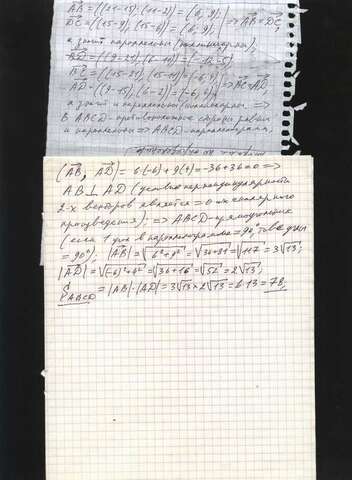 AB = ((21-15), (11-2)) = (6, 9);
DC = ((15-9), (15-6)) = (6, 9); => AB = DC,
а значит параллельны (коллинеарны).
AD = ((9-21), (6-11)) = (-12, -5)
BC = ((15-21), (15-11)) = (-6, 4)
AD = ((9-15), (6-2)) = (-6, 4); => BC = AD,
а значит и параллельны (коллинеарны. =>
В ABCD - противоположные стороны равны
и параллельны => ABCD - параллелограмм,
(AB, AD) = 6·(-6) + 9(4) = -36+36=0 =>
AB ⊥ AD (условие перпендикулярности
2-х векторов является = 0 их скалярного
произведения); => ABCD - прямоугольник
(если 1 угол в параллелограмме = 90°, то все углы
= 90°); |AB| = √6²+9² = √36+81 = √117 = 3√13;
|AD| = √(-6)²+4² = √36+16 = √52 = 2√13;
S ABCD = |AB|·|AD| = 3√13 × 2√13 = 6·13 = 78,